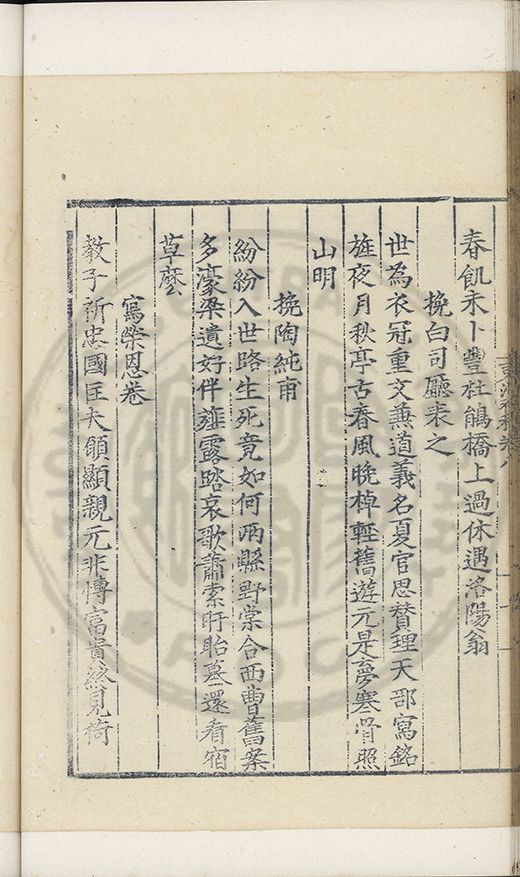 春飢未卜豐杜鵑橋上過休遇洛陽翁
挽白司廳表之
世為衣冠重文兼道義名夏官思賛理天部寫銘
旌夜月秋亭古春風晚棹輕舊遊元是夢塞骨照
山明
挽陶純甫
紛紛入世路生死竟如何兩縣野棠合西曹舊案
多濠梁遺好伴薤露踏哀歌蕭索盱眙墓還看宿
草麼
寫榮恩卷
教子祈忠國匡夫願顯親元非慱富貴終見荷